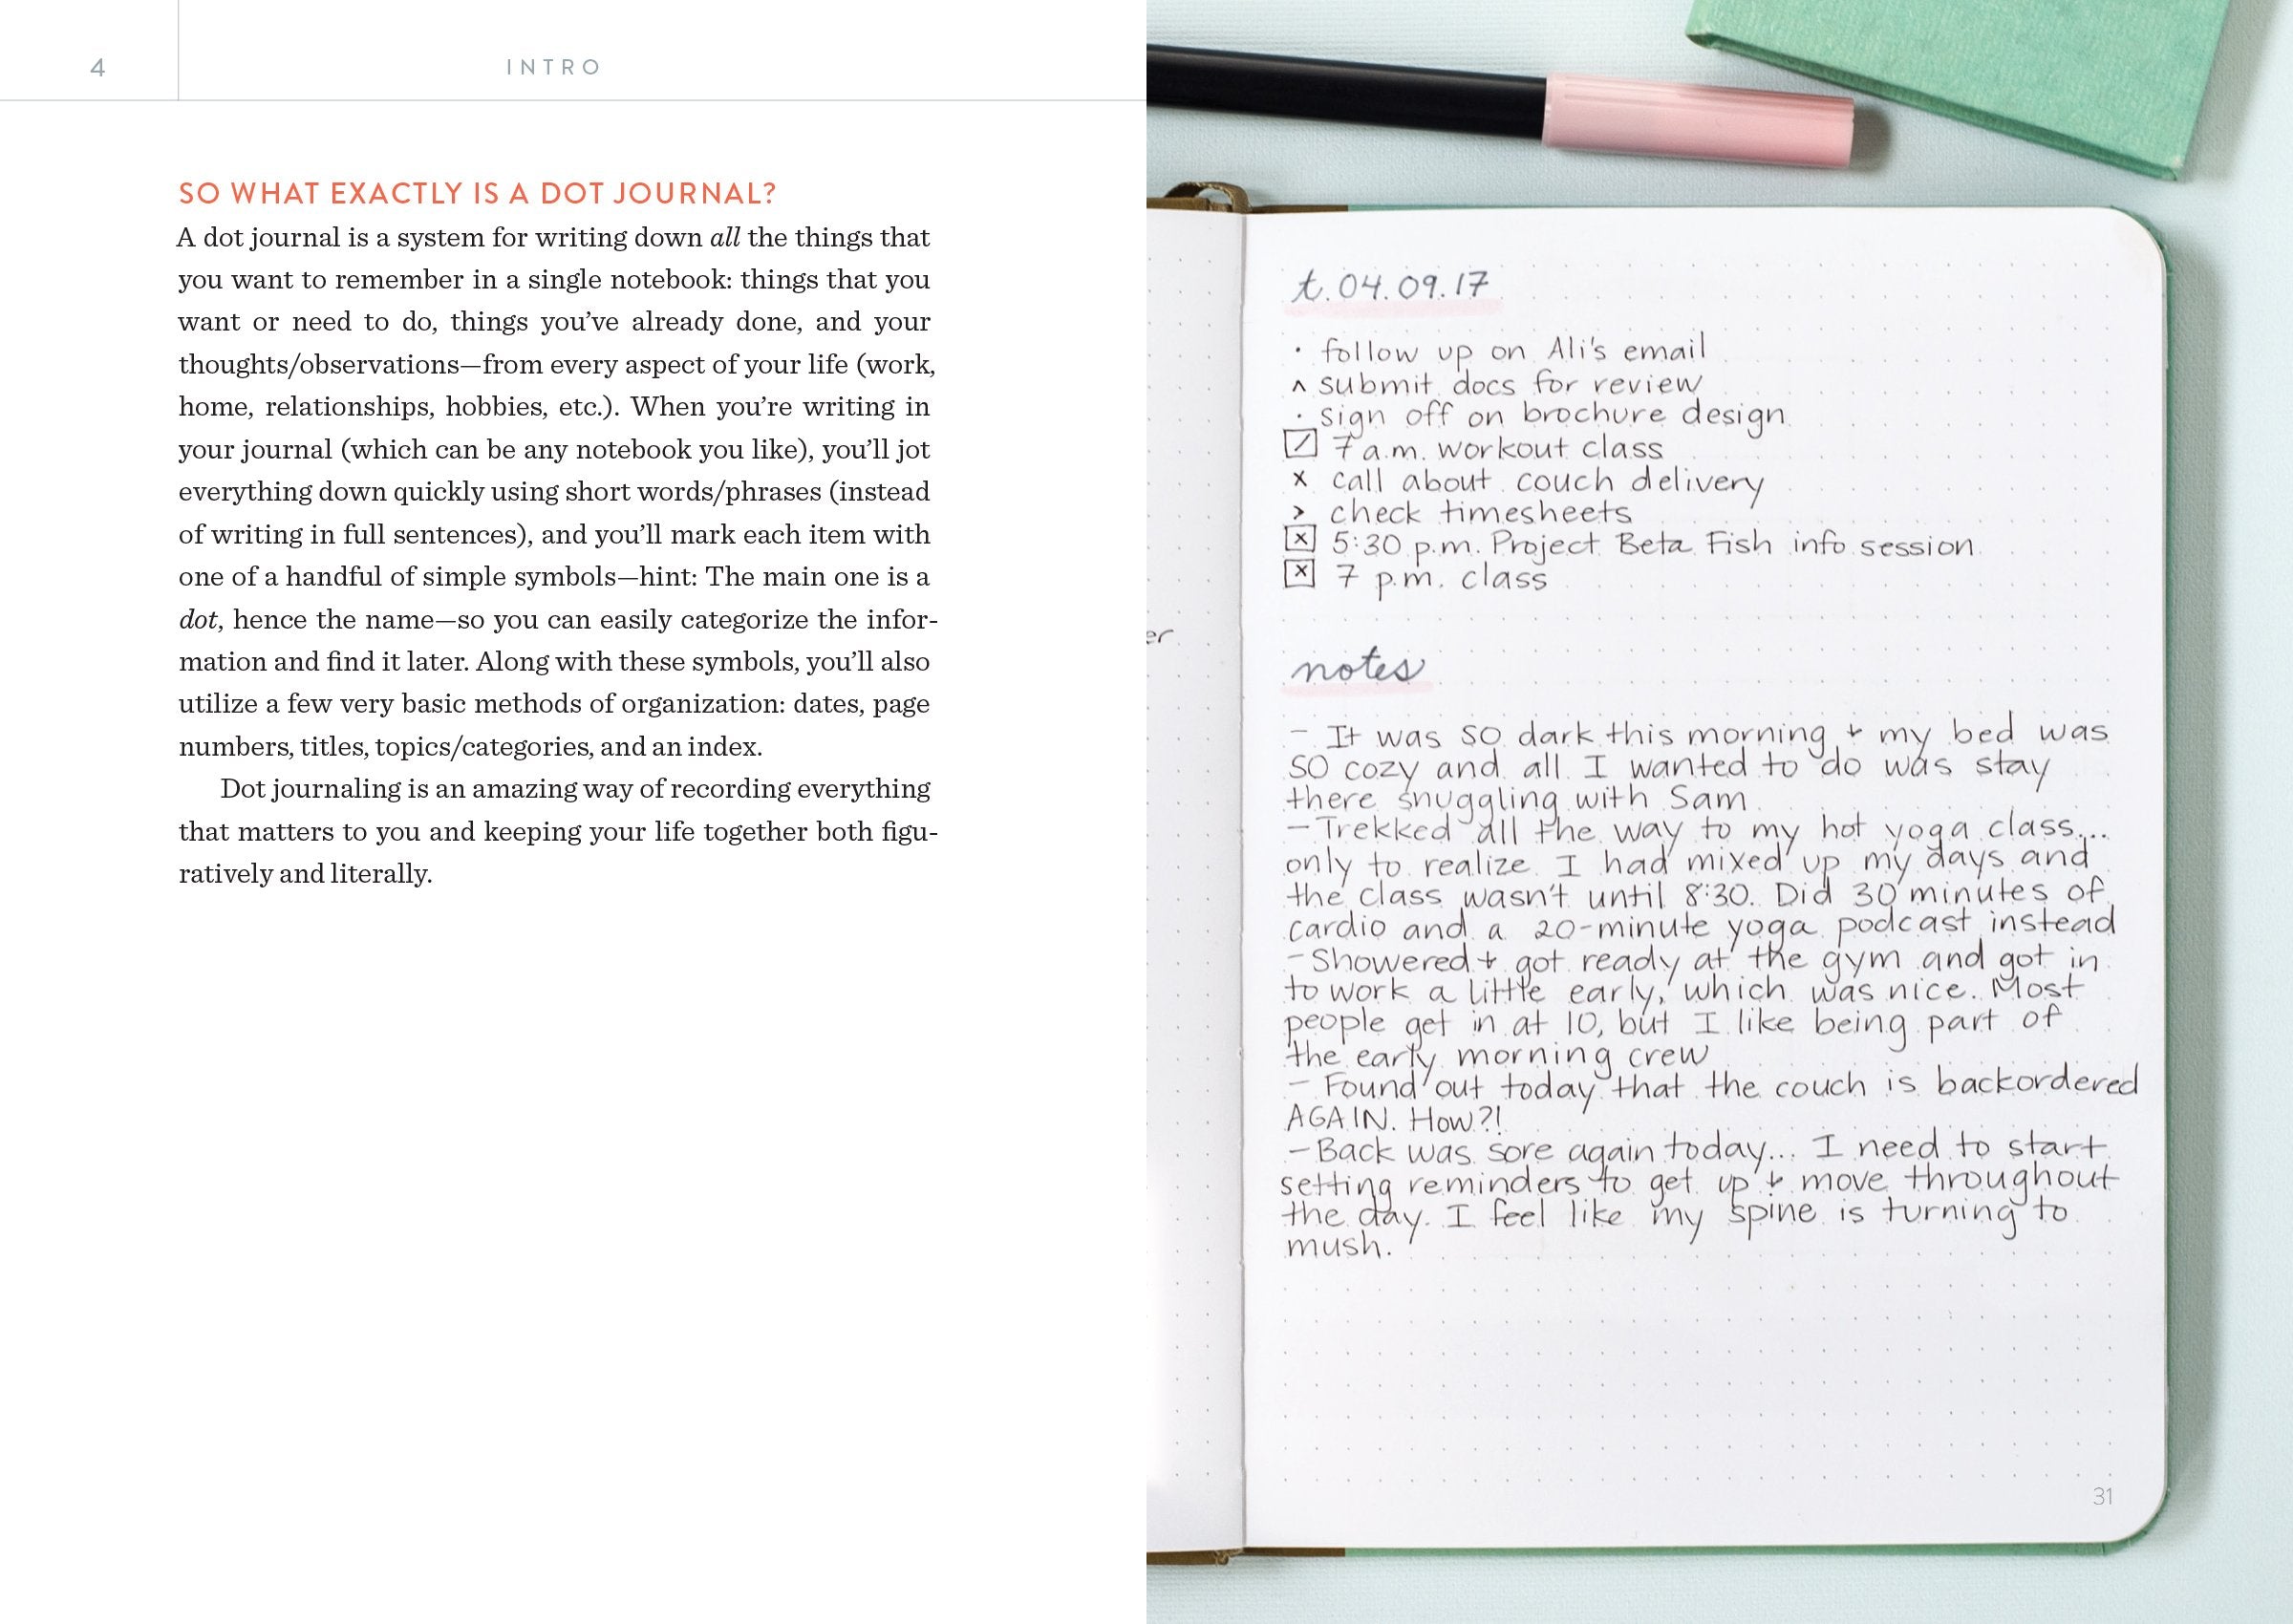 4
INTRO
SO WHAT EXACTLY IS A DOT JOURNAL?
A dot journal is a system for writing down all the things that
you want to remember in a single notebook: things that you
want or need to do, things you’ve already done, and your
thoughts/observations—from every aspect of your life (work,
home, relationships, hobbies, etc.). When you’re writing in
your journal (which can be any notebook you like), you’ll jot
everything down quickly using short words/phrases (instead
of writing in full sentences), and you’ll mark each item with
one of a handful of simple symbols—hint: The main one is a
dot, hence the name—so you can easily categorize the infor-
mation and find it later. Along with these symbols, you’ll also
utilize a few very basic methods of organization: dates, page
numbers, titles, topics/categories, and an index.
Dot journaling is an amazing way of recording everything
that matters to you and keeping your life together both figu-
ratively and literally.
er
t. 04.09.17
· follow up on Ali's email
^ submit docs for review
· sign off on brochure design
☑ 7 a.m. workout class
x call about couch delivery
> check timesheets
☒ 5:30 p.m. Project Beta Fish info session
☒ 7 p.m. class
notes
- It was so dark this morning + my bed was
SO cozy and all I wanted to do was stay
there snuggling with Sam
- Trekked all the way to my hot yoga class...
only to realize I had mixed up my days and
the class wasn't until 8:30. Did 30 minutes of
cardio and a 20-minute yoga podcast instead
- Showered + got ready at the gym and got in
to work a little early, which was nice. Most
people get in at 10, but I like being part of
the early morning crew
- Found out today that the couch is backordered
AGAIN. How?!
- Back was sore again today... I need to start
setting reminders to get up + move throughout
the day. I feel like my spine is turning to
mush.
31